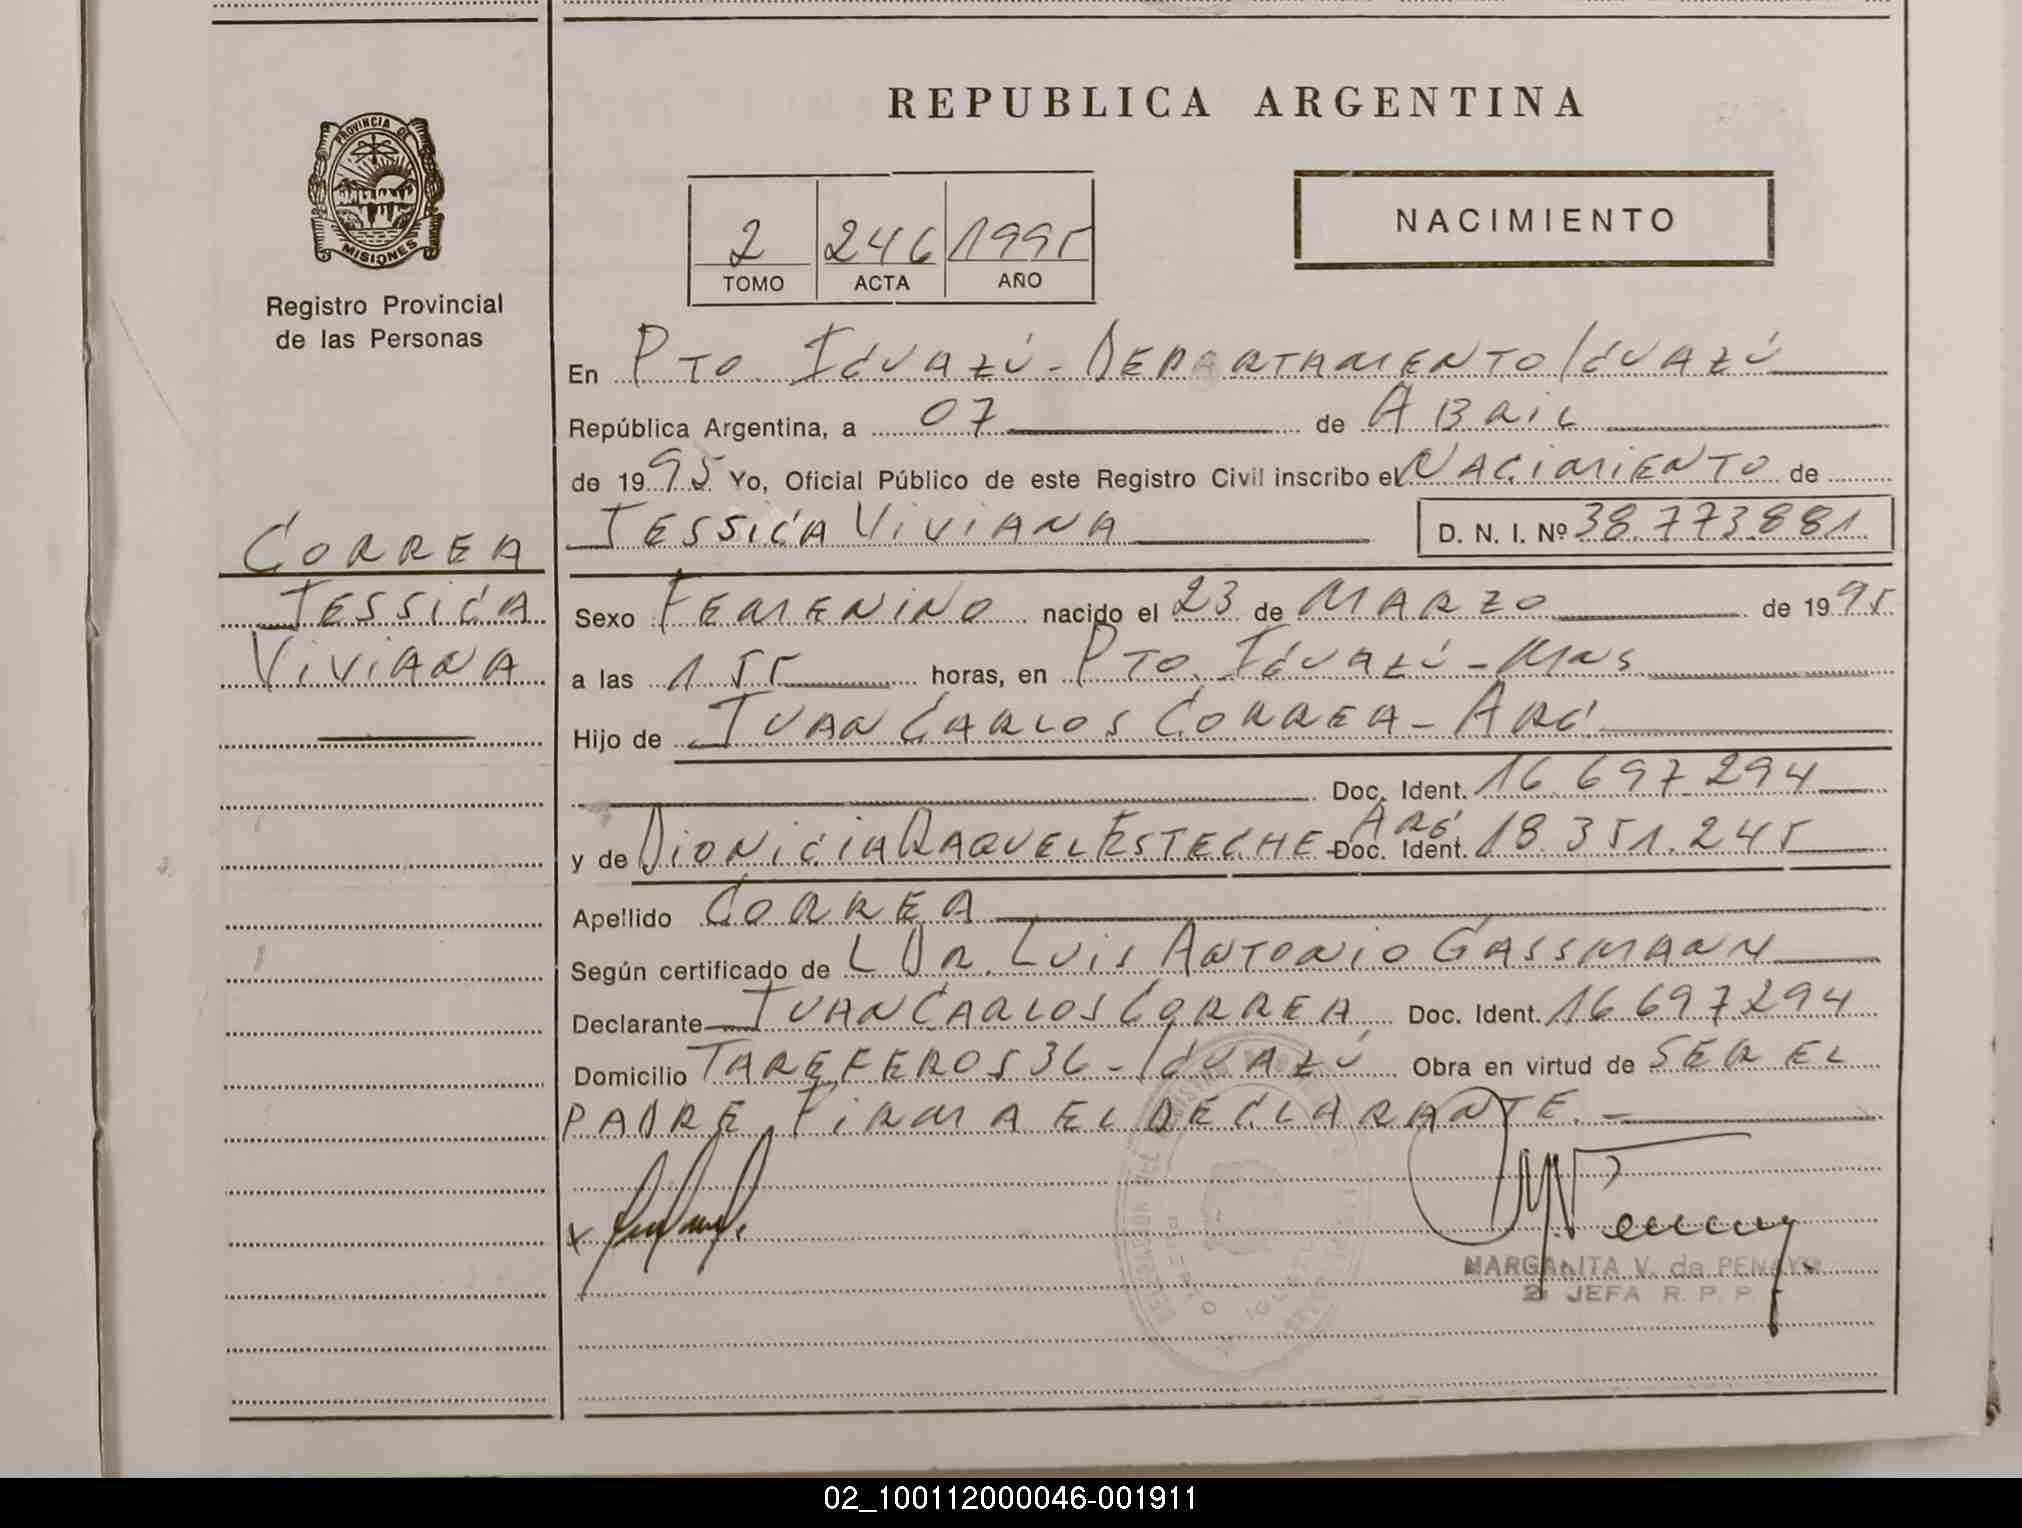 REPUBLICA ARGENTINA
PROVINCIA DE
MISIONES
Registro Provincial
de las Personas
2 246 1995
TOMO ACTA AÑO
NACIMIENTO
En PTO. IGUAZÚ - DEPARTAMENTO IGUAZÚ
República Argentina, a 07 de ABRIL
de 1995 Yo, Oficial Público de este Registro Civil inscribo el NACIMIENTO de
JESSICA VIVIANA D. N. I. Nº 38.773.881
CORREA
JESSICA
VIVIANA
Sexo FEMENINO nacido el 23 de MARZO de 1995
a las 1 55 horas, en PTO. IGUAZÚ - MNS
Hijo de JUAN CARLOS CORREA - ARG.
Doc. Ident. 16.697.294
y de DIONICIA RAQUEL ESTECHE - ARG. Doc. Ident. 18.351.245
Apellido CORREA
Según certificado de L DR. LUIS ANTONIO GASSMANN
Declarante JUAN CARLOS CORREA Doc. Ident. 16.697.294
Domicilio TAREFEROS 36 - IGUAZÚ Obra en virtud de SER EL
PADRE, FIRMA EL DECLARANTE. -
x
MARGARITA V. de PENAYO
2ª JEFA R. P. P.
02_100112000046-001911